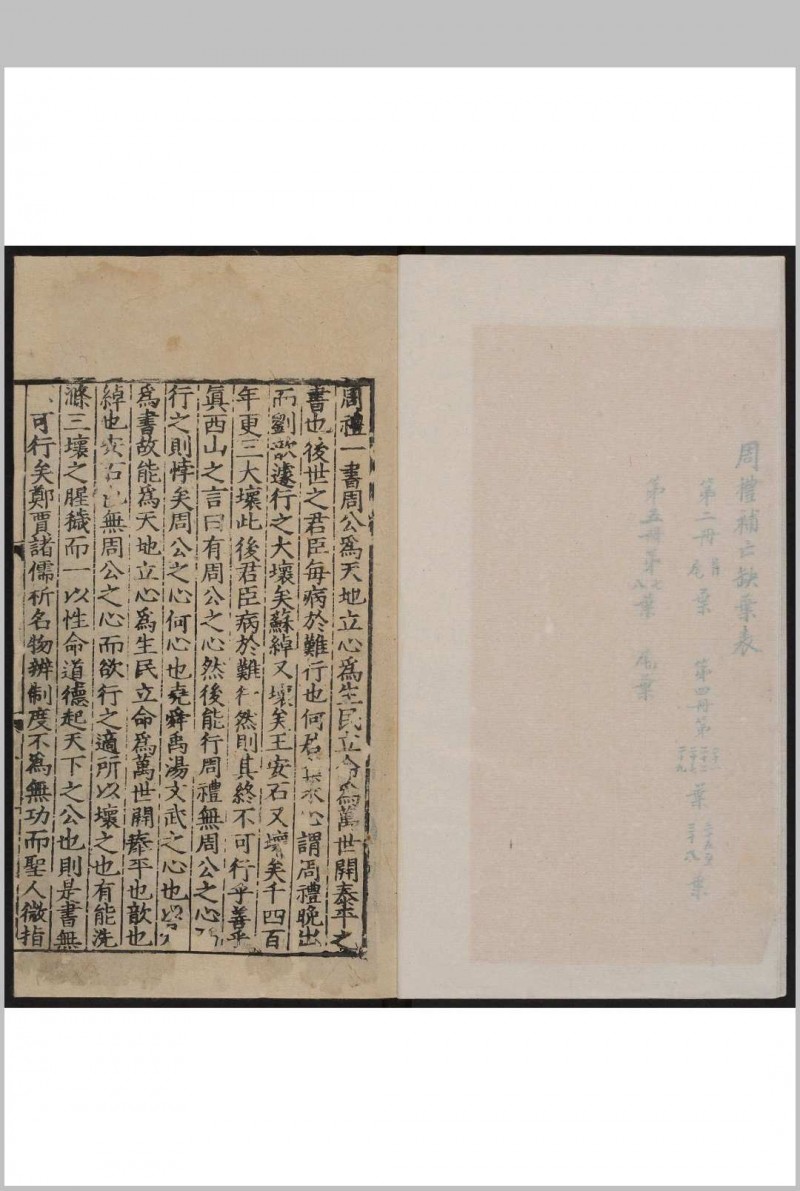 周禮補亡缺葉表
第二冊 首尾葉 第四冊第 葉 葉
第五冊第七八葉 尾葉
周禮一書周公為天地立心為生民立命為萬世開泰平之
書也後世之君臣每病於難行也何君 心謂周禮晚出
而劉歆遽行之大壞矣蘇綽又壞矣王安石又壞矣千四百
年更三大壞此後君臣病於難行然則其終不可行乎善乎
真西山之言曰有周公之心然後能行周禮無周公之心
行之則悖矣周公之心何心也堯舜禹湯文武之心也以
為書故能為天地立心為生民立命為萬世開泰平也歆也
綽也安石也無周公之心而欲行之適所以壞之也有能洗
滌三壞之腥穢而一以性命道德起天下之公也則是書無
不可行矣鄭賈諸儒析名物辨制度不為無功而聖人微指